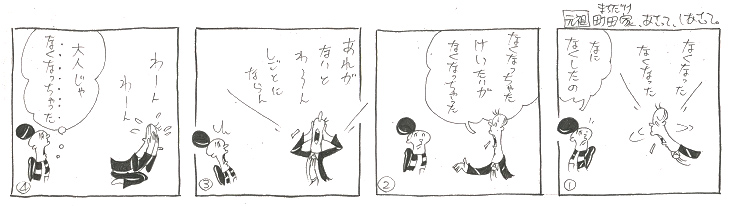 元祖 町田家、あさって、しあさって。
まちだけ
なくなった
なくなった
なに
なくしたの
①
なくなっちゃた
けいたいが
なくなっちゃた
②
あれが
ないと
わーん
しごとに
ならん
③
わーん
わーん
大人じゃ
なくなっちゃった
④